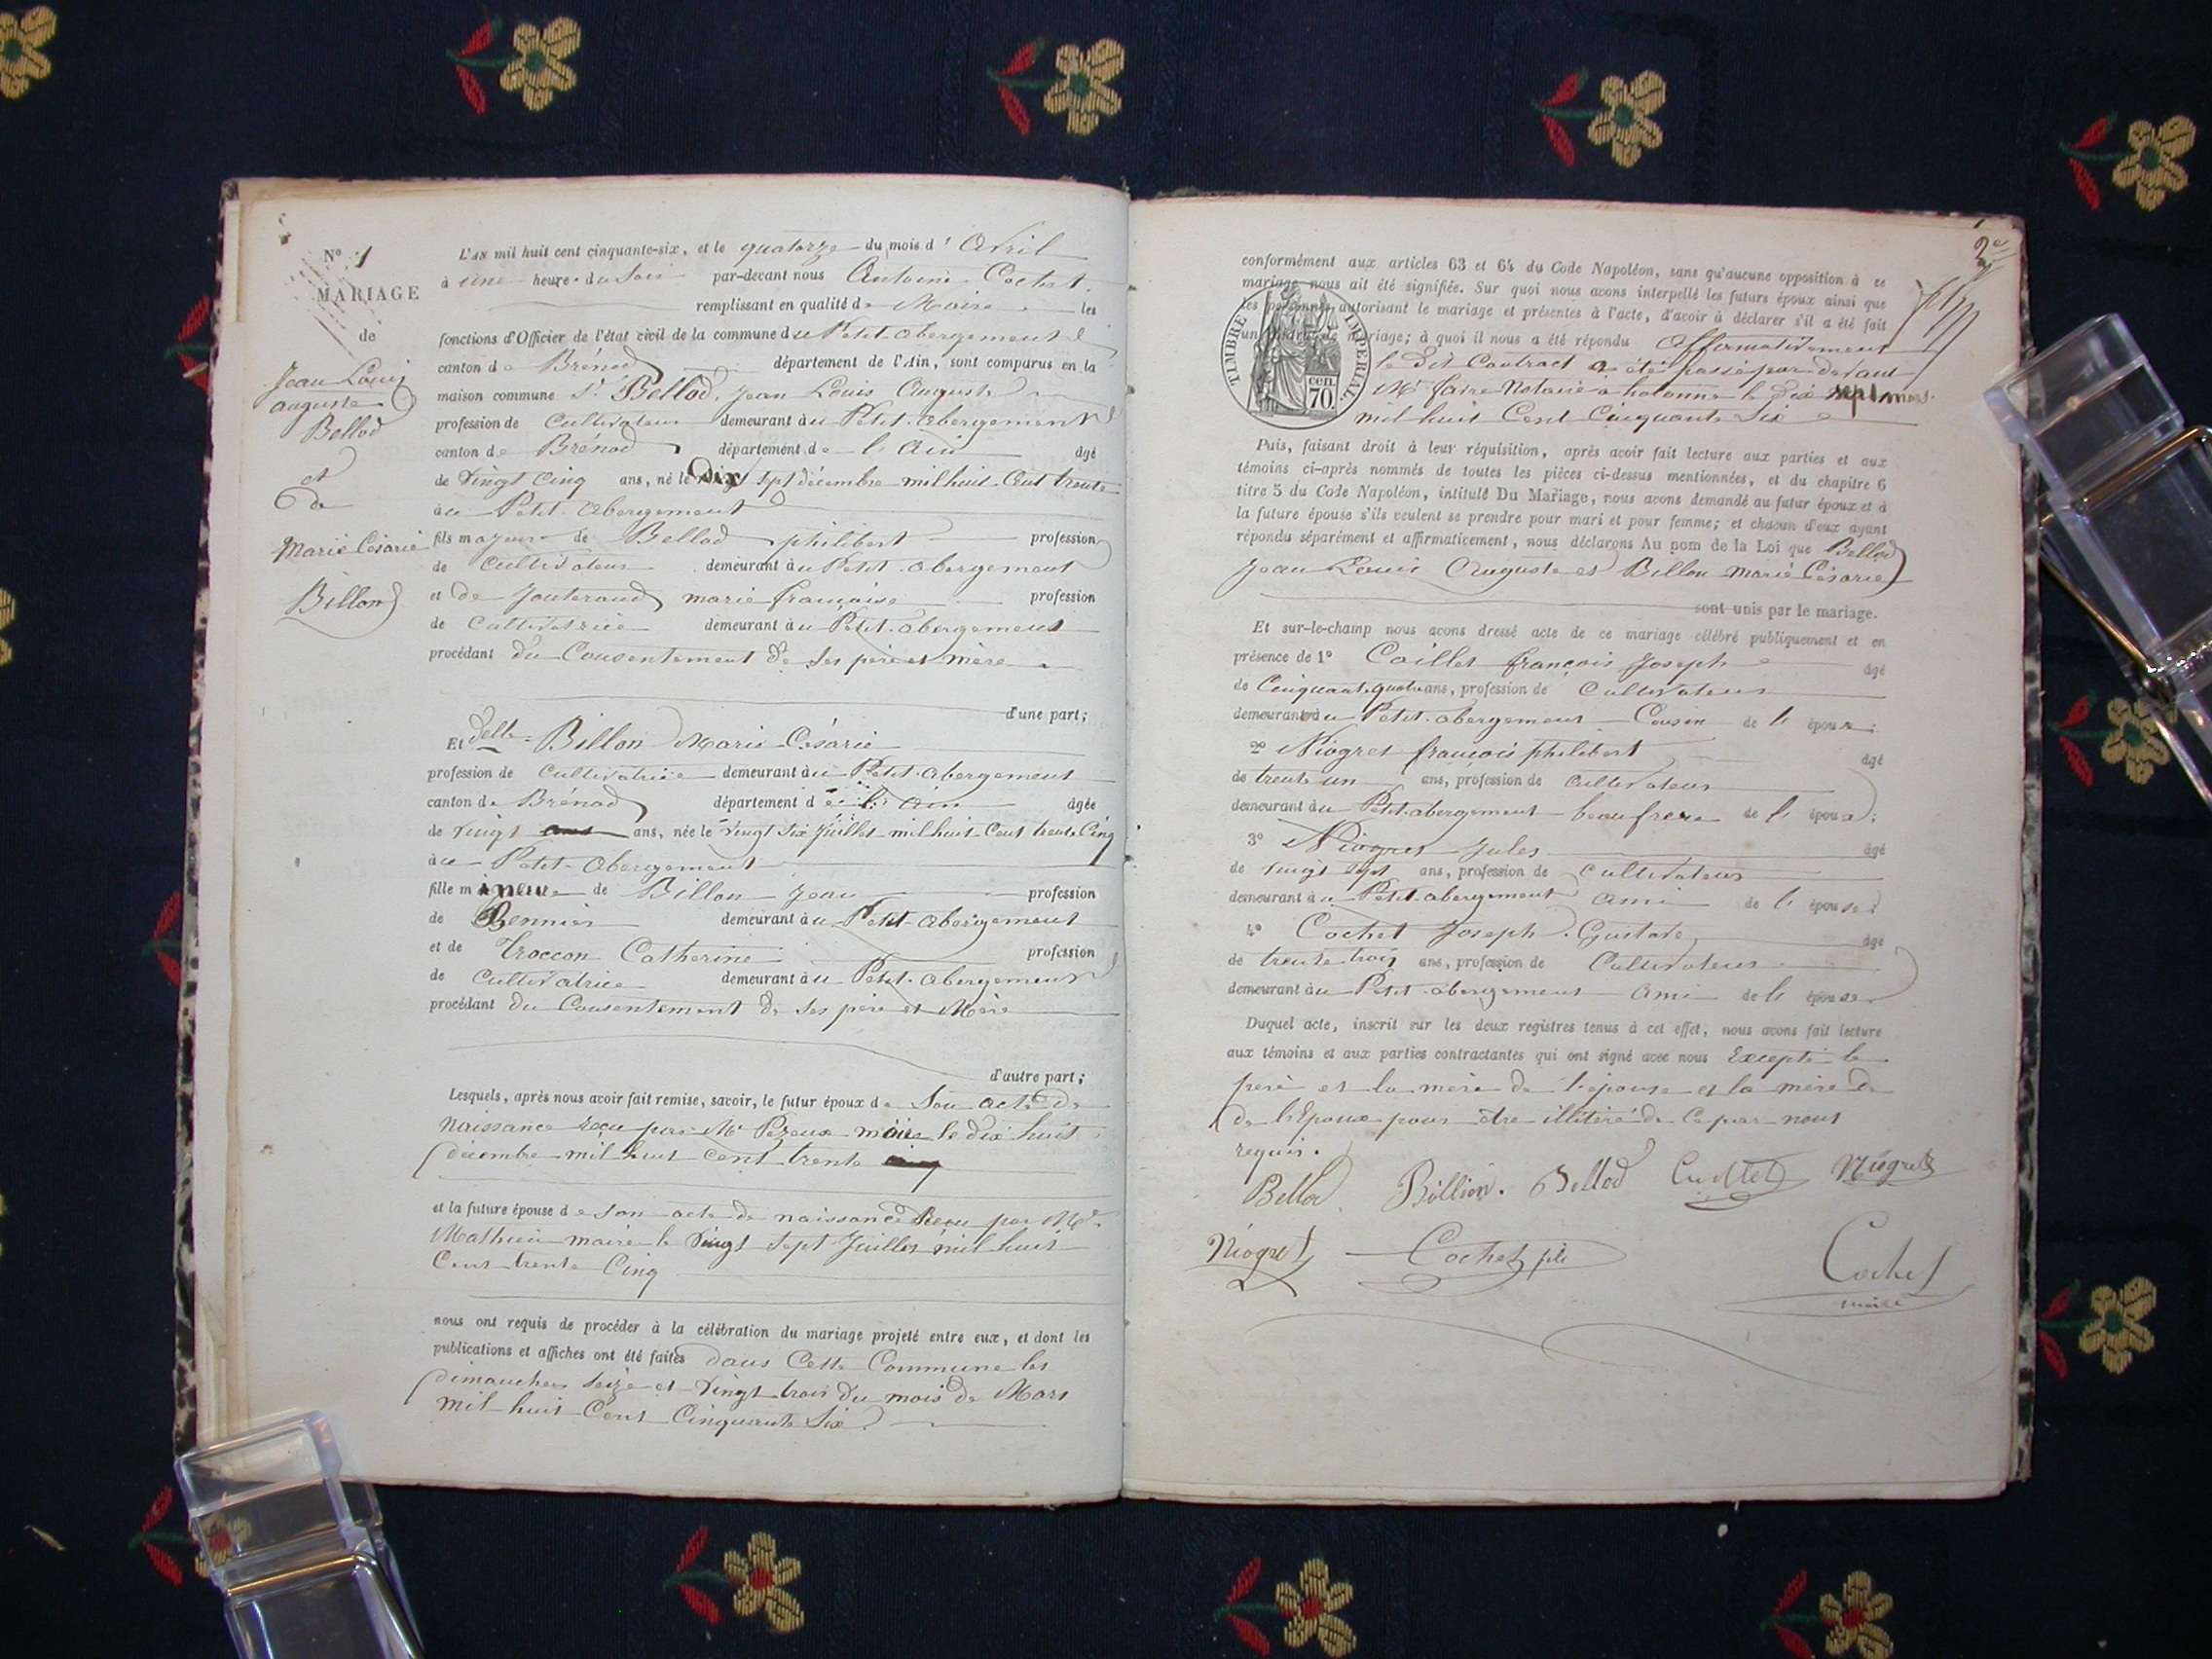 N° 1
MARIAGE
de
Jean Louis
auguste
Bellod
et
de
Marie Césarie
Billon
L'AN mil huit cent cinquante-six, et le quatorze du mois d'Avril
à une heure du soir par-devant nous Antoine Cochet
remplissant en qualité de Maire les
fonctions d'Officier de l'état civil de la commune du Petit-abergement
canton de Brénod département de l'Ain, sont comparus en la
maison commune Sr Bellod, Jean Louis Auguste
profession de Cultivateur demeurant au Petit-abergement
canton de Brénod département de l'Ain âgé
de vingt cinq ans, né le Dix sept décembre mil huit Cent trente
au Petit-abergement
fils majeur de Bellod philibert profession
de Cultivateur demeurant au Petit-abergement
et de Jouteraud marie françoise profession
de Cultivatrice demeurant au Petit-abergement
procédant du Consentement de ses père et mère
d'une part;
Et delle Billon Marie Césarie
profession de Cultivatrice demeurant au Petit-abergement
canton de Brénod département de l'Ain âgée
de vingt ans, née le vingt six juillet mil huit Cent trente Cinq
au Petit-abergement
fille mineure de Billon Jean profession
de demeurant au Petit-abergement
et de Troccon Catherine profession
de Cultivatrice demeurant au Petit-abergement
procédant du Consentement de ses père et Mère
d'autre part;
Lesquels, après nous avoir fait remise, savoir, le futur époux de Son acte de
Naissance reçu par Mr Pezeux maire le dix huit
décembre mil huit cent trente
et la future épouse de son acte de naissance Reçu par Mr
Mathieu maire le vingt sept Juillet mil huit
Cent trente Cinq
nous ont requis de procéder à la célébration du mariage projeté entre eux, et dont les
publications et affiches ont été faites dans Cette Commune les
dimanches seize et vingt trois du mois de Mars
mil huit Cent Cinquante Six
2e
conformément aux articles 63 et 64 du Code Napoléon, sans qu'aucune opposition à ce
mariage nous ait été signifiée. Sur quoi nous avons interpellé les futurs époux ainsi que
les personnes autorisant le mariage et présentes à l'acte, d'avoir à déclarer s'il a été fait
un contrat de mariage; à quoi il nous a été répondu Affirmativement
TIMBRE IMPERIAL
cen.
70.
le dit Contract a été passé par devant
Mr faire Notaire à hotonne le dix sept mars
mil huit Cent Cinquante Six
Puis, faisant droit à leur réquisition, après avoir fait lecture aux parties et aux
témoins ci-après nommés de toutes les pièces ci-dessus mentionnées, et du chapitre 6
titre 5 du Code Napoléon, intitulé Du Mariage, nous avons demandé au futur époux et à
la future épouse s'ils veulent se prendre pour mari et pour femme; et chacun d'eux ayant
répondu séparément et affirmativement, nous déclarons Au nom de la Loi que Bellod
Jean Louis Auguste et Billon Marie Césarie
sont unis par le mariage.
Et sur-le-champ nous avons dressé acte de ce mariage célébré publiquement et en
présence de 1° Caillet françois Joseph âgé
de Cinquante quatre ans, profession de Cultivateur
demeurant au Petit-abergement Cousin de l'époux;
2° Niogret françois philibert âgé
de trente un ans, profession de Cultivateur
demeurant au Petit-abergement beaufrere de l'époux;
3° Niogret Jules âgé
de vingt sept ans, profession de Cultivateur
demeurant au Petit-abergement ami de l'épouse;
4° Cochet Joseph Gustave âgé
de trente trois ans, profession de Cultivateur
demeurant au Petit-abergement ami de l'épouse
Duquel acte, inscrit sur les deux registres tenus à cet effet, nous avons fait lecture
aux témoins et aux parties contractantes qui ont signé avec nous Excepté le
père et la mère de l'épouse et la mère de
de l'Epoux pour être illitéré de Ce par nous
requis.
Bellod Billion. Bellod Niogret
Niogret Cochet fils Cochet
maire